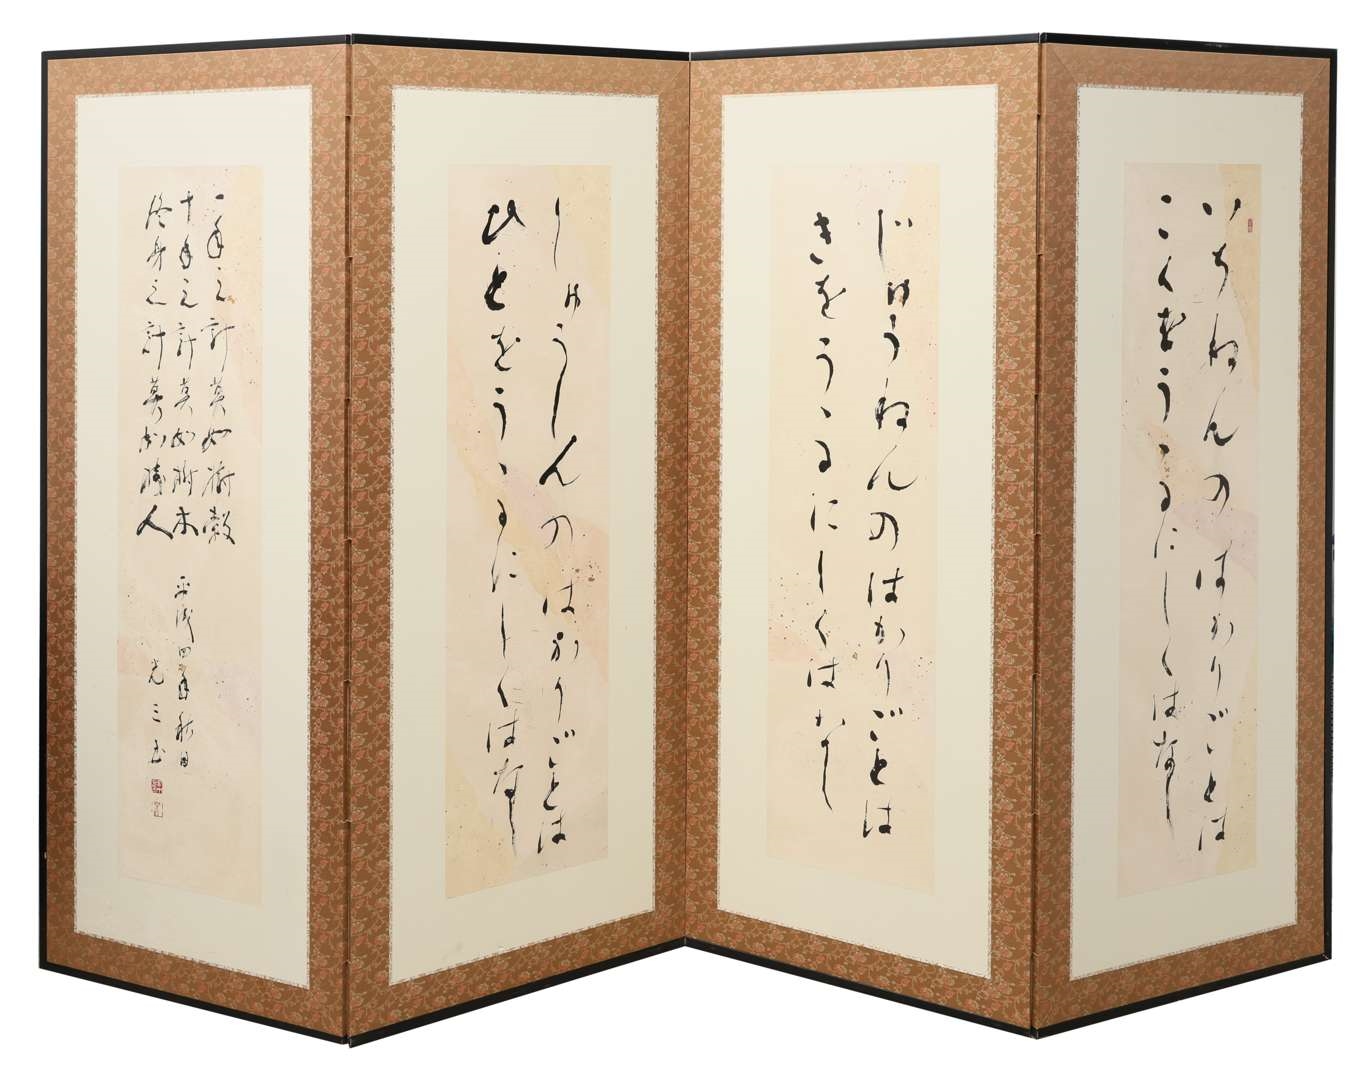 いちねんのはかりごとは
こくをうゝるにしくはなし
じゅうねんのはかりごとは
きをうゝるにしくはなし
しゅうしんのはかりごとは
ひとをうゝるにしくはなし
一年之計莫如樹穀
十年之計莫如樹木
終身之計莫如樹人
平成四年秋日
光三書